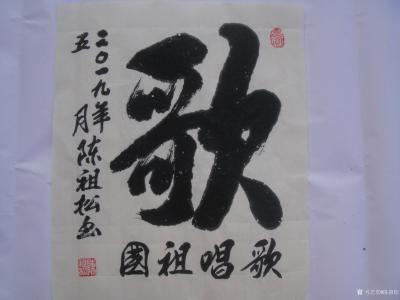 歌
歌唱祖國
二〇一九年
五月陈祖松书